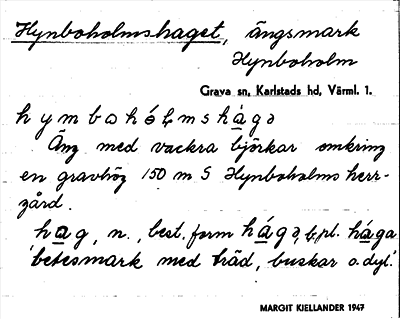 Hynboholmshaget, ängsmark
Hynboholm
Grava sn, Karlstads hd, Värml. 1.
hymbohólmshágə
Äng med vackra björkar omkring
en gravhög 150 m S Hynboholms herr-
gård.
hag, n., best. form hágə, b. pl. hága
'betesmark med träd, buskar o. dyl.'
MARGIT KJELLANDER 1947